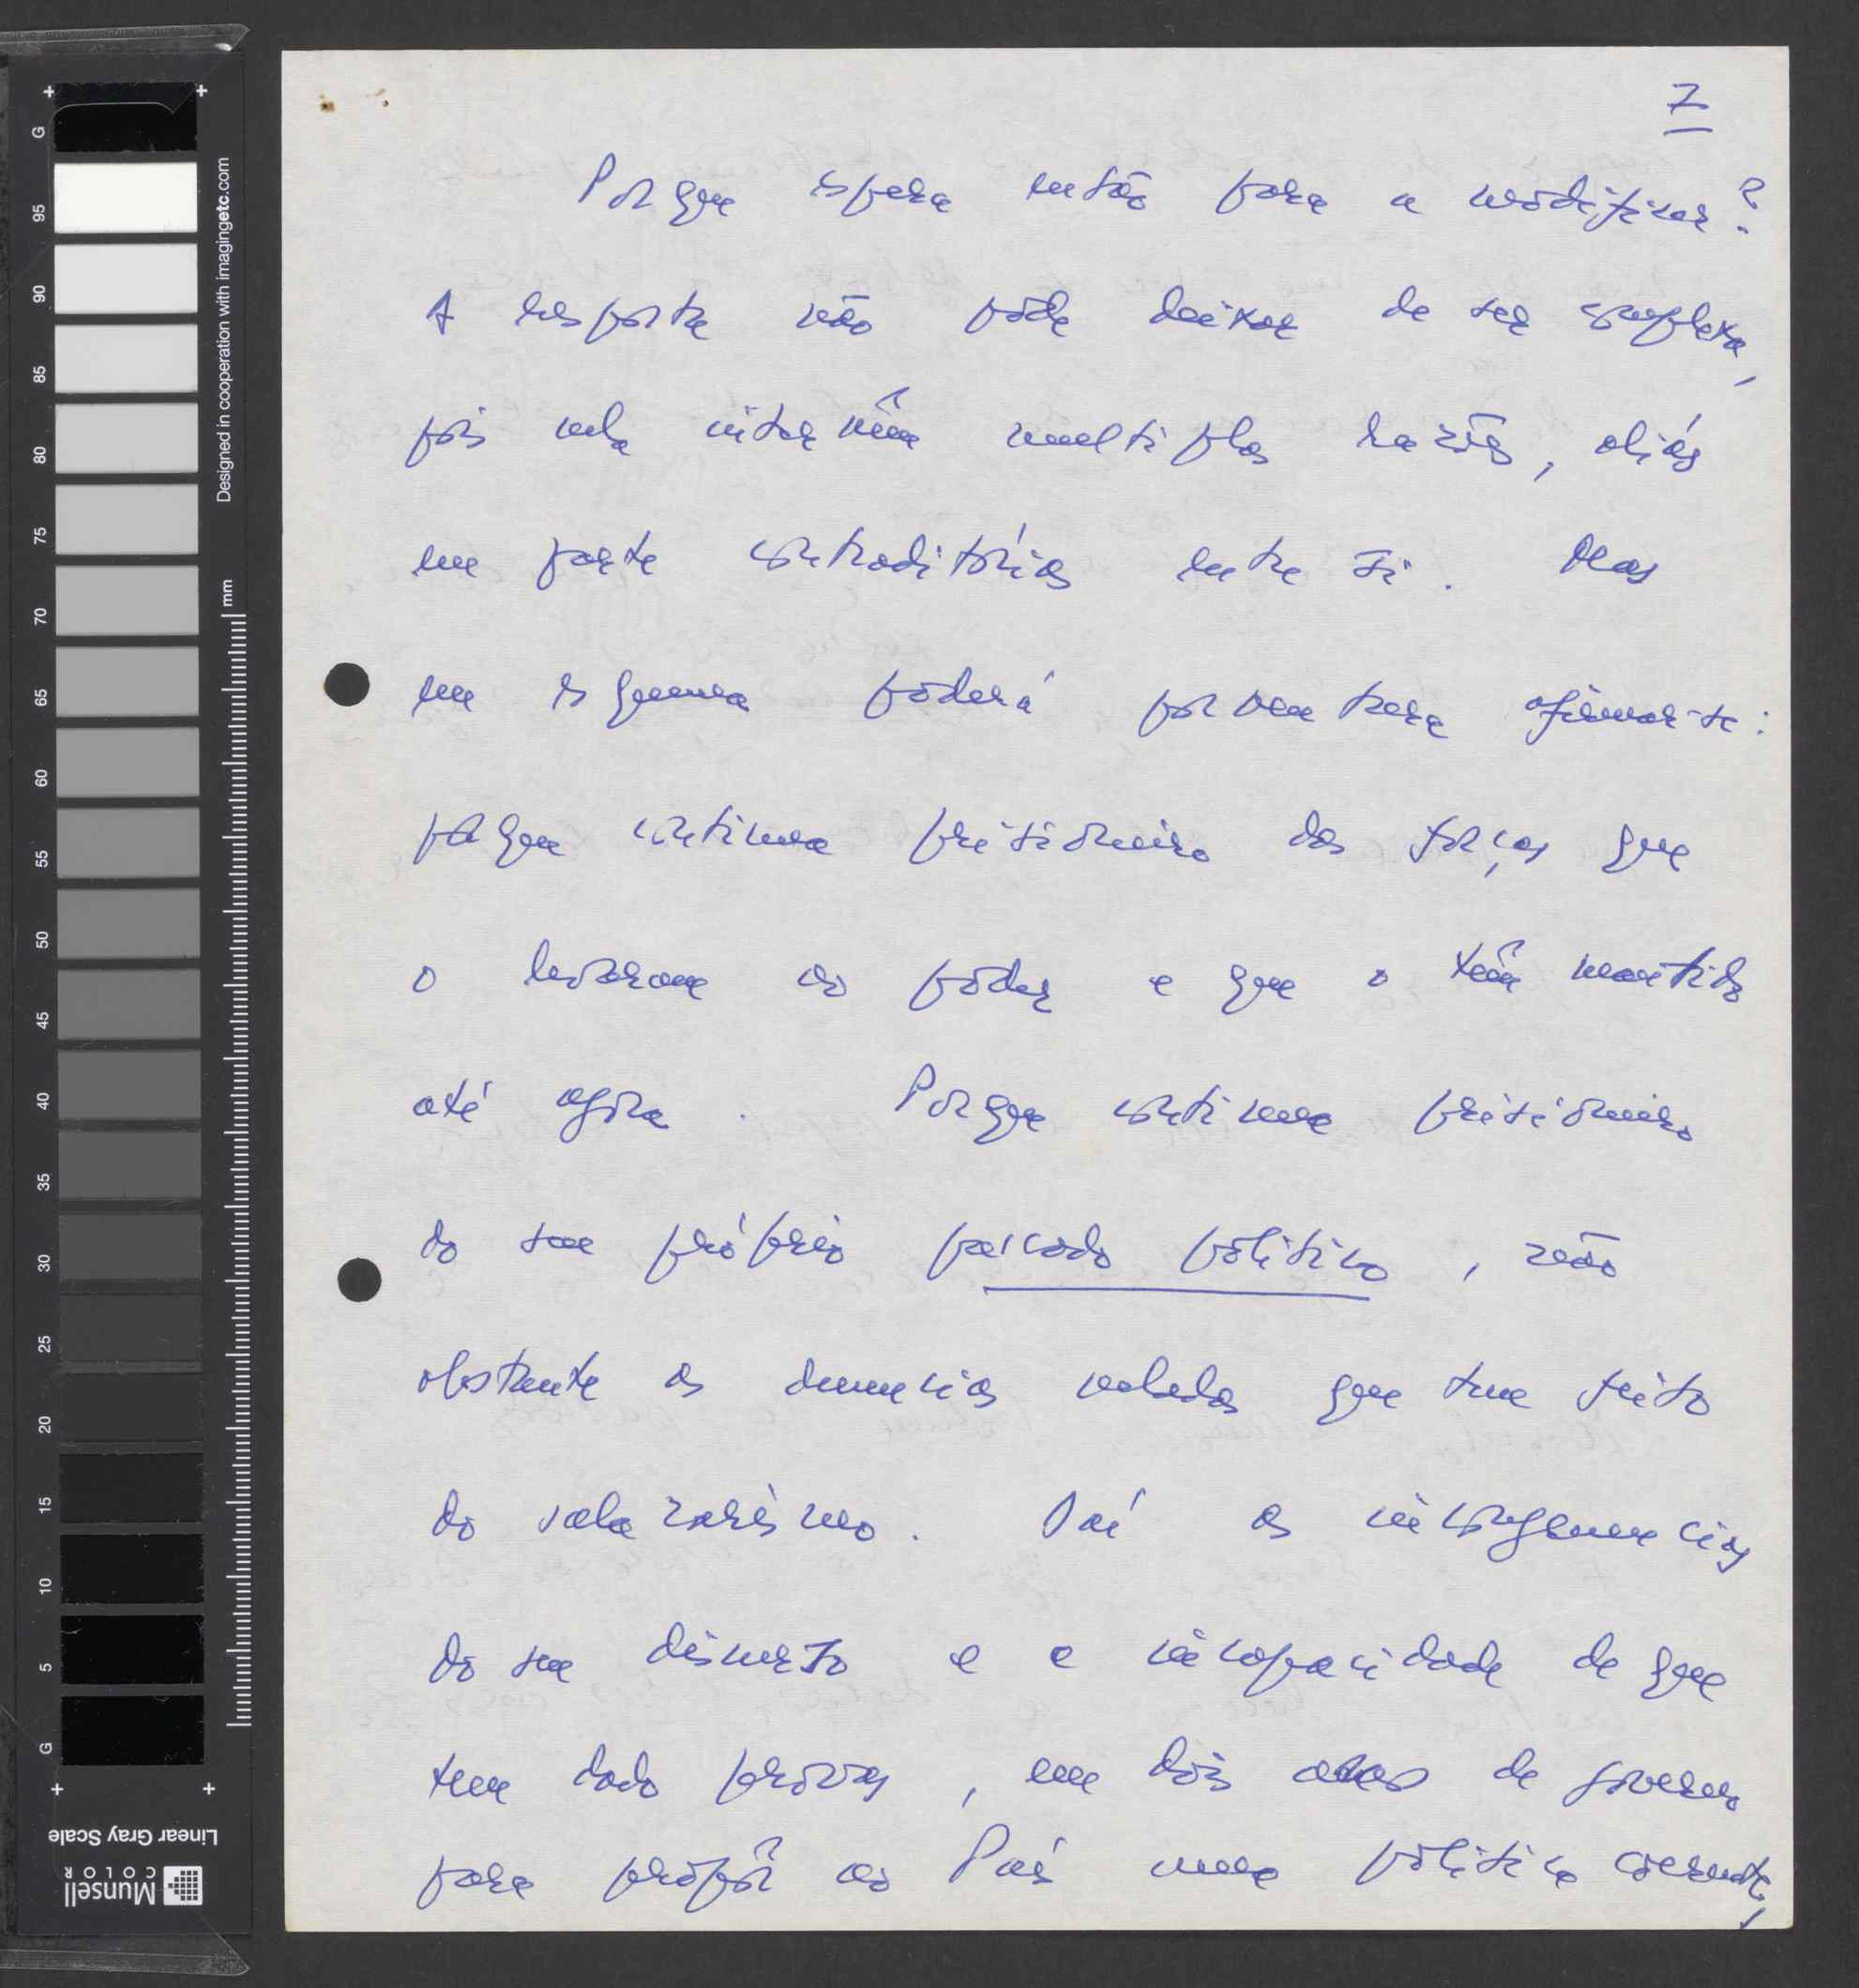 7
Porque espera então para a modificar?
A resposta não pode deixar de ser complexa,
pois nela intervêm multiplas razões, aliás
em parte contraditórias entre si. Mas
em esquema poderá porventura afirmar-se:
porque continua prisioneiro das forças que
o levaram ao poder e que o têm mantido
até agora. Porque continua prisioneiro
do seu próprio passado político, não
obstante as denuncias veladas que tem feito
do salazarismo. Daí as incongruencias
do seu discurso e a incapacidade de que
tem dado provas, em dois anos de governo
para propôr ao País uma política coerente,
G
95
90
85
80
75
70
65
60
55
50
45
40
35
30
25
20
15
10
5
G
mm
Designed in cooperation with imagingetc.com
Munsell
COLOR
Linear Gray Scale